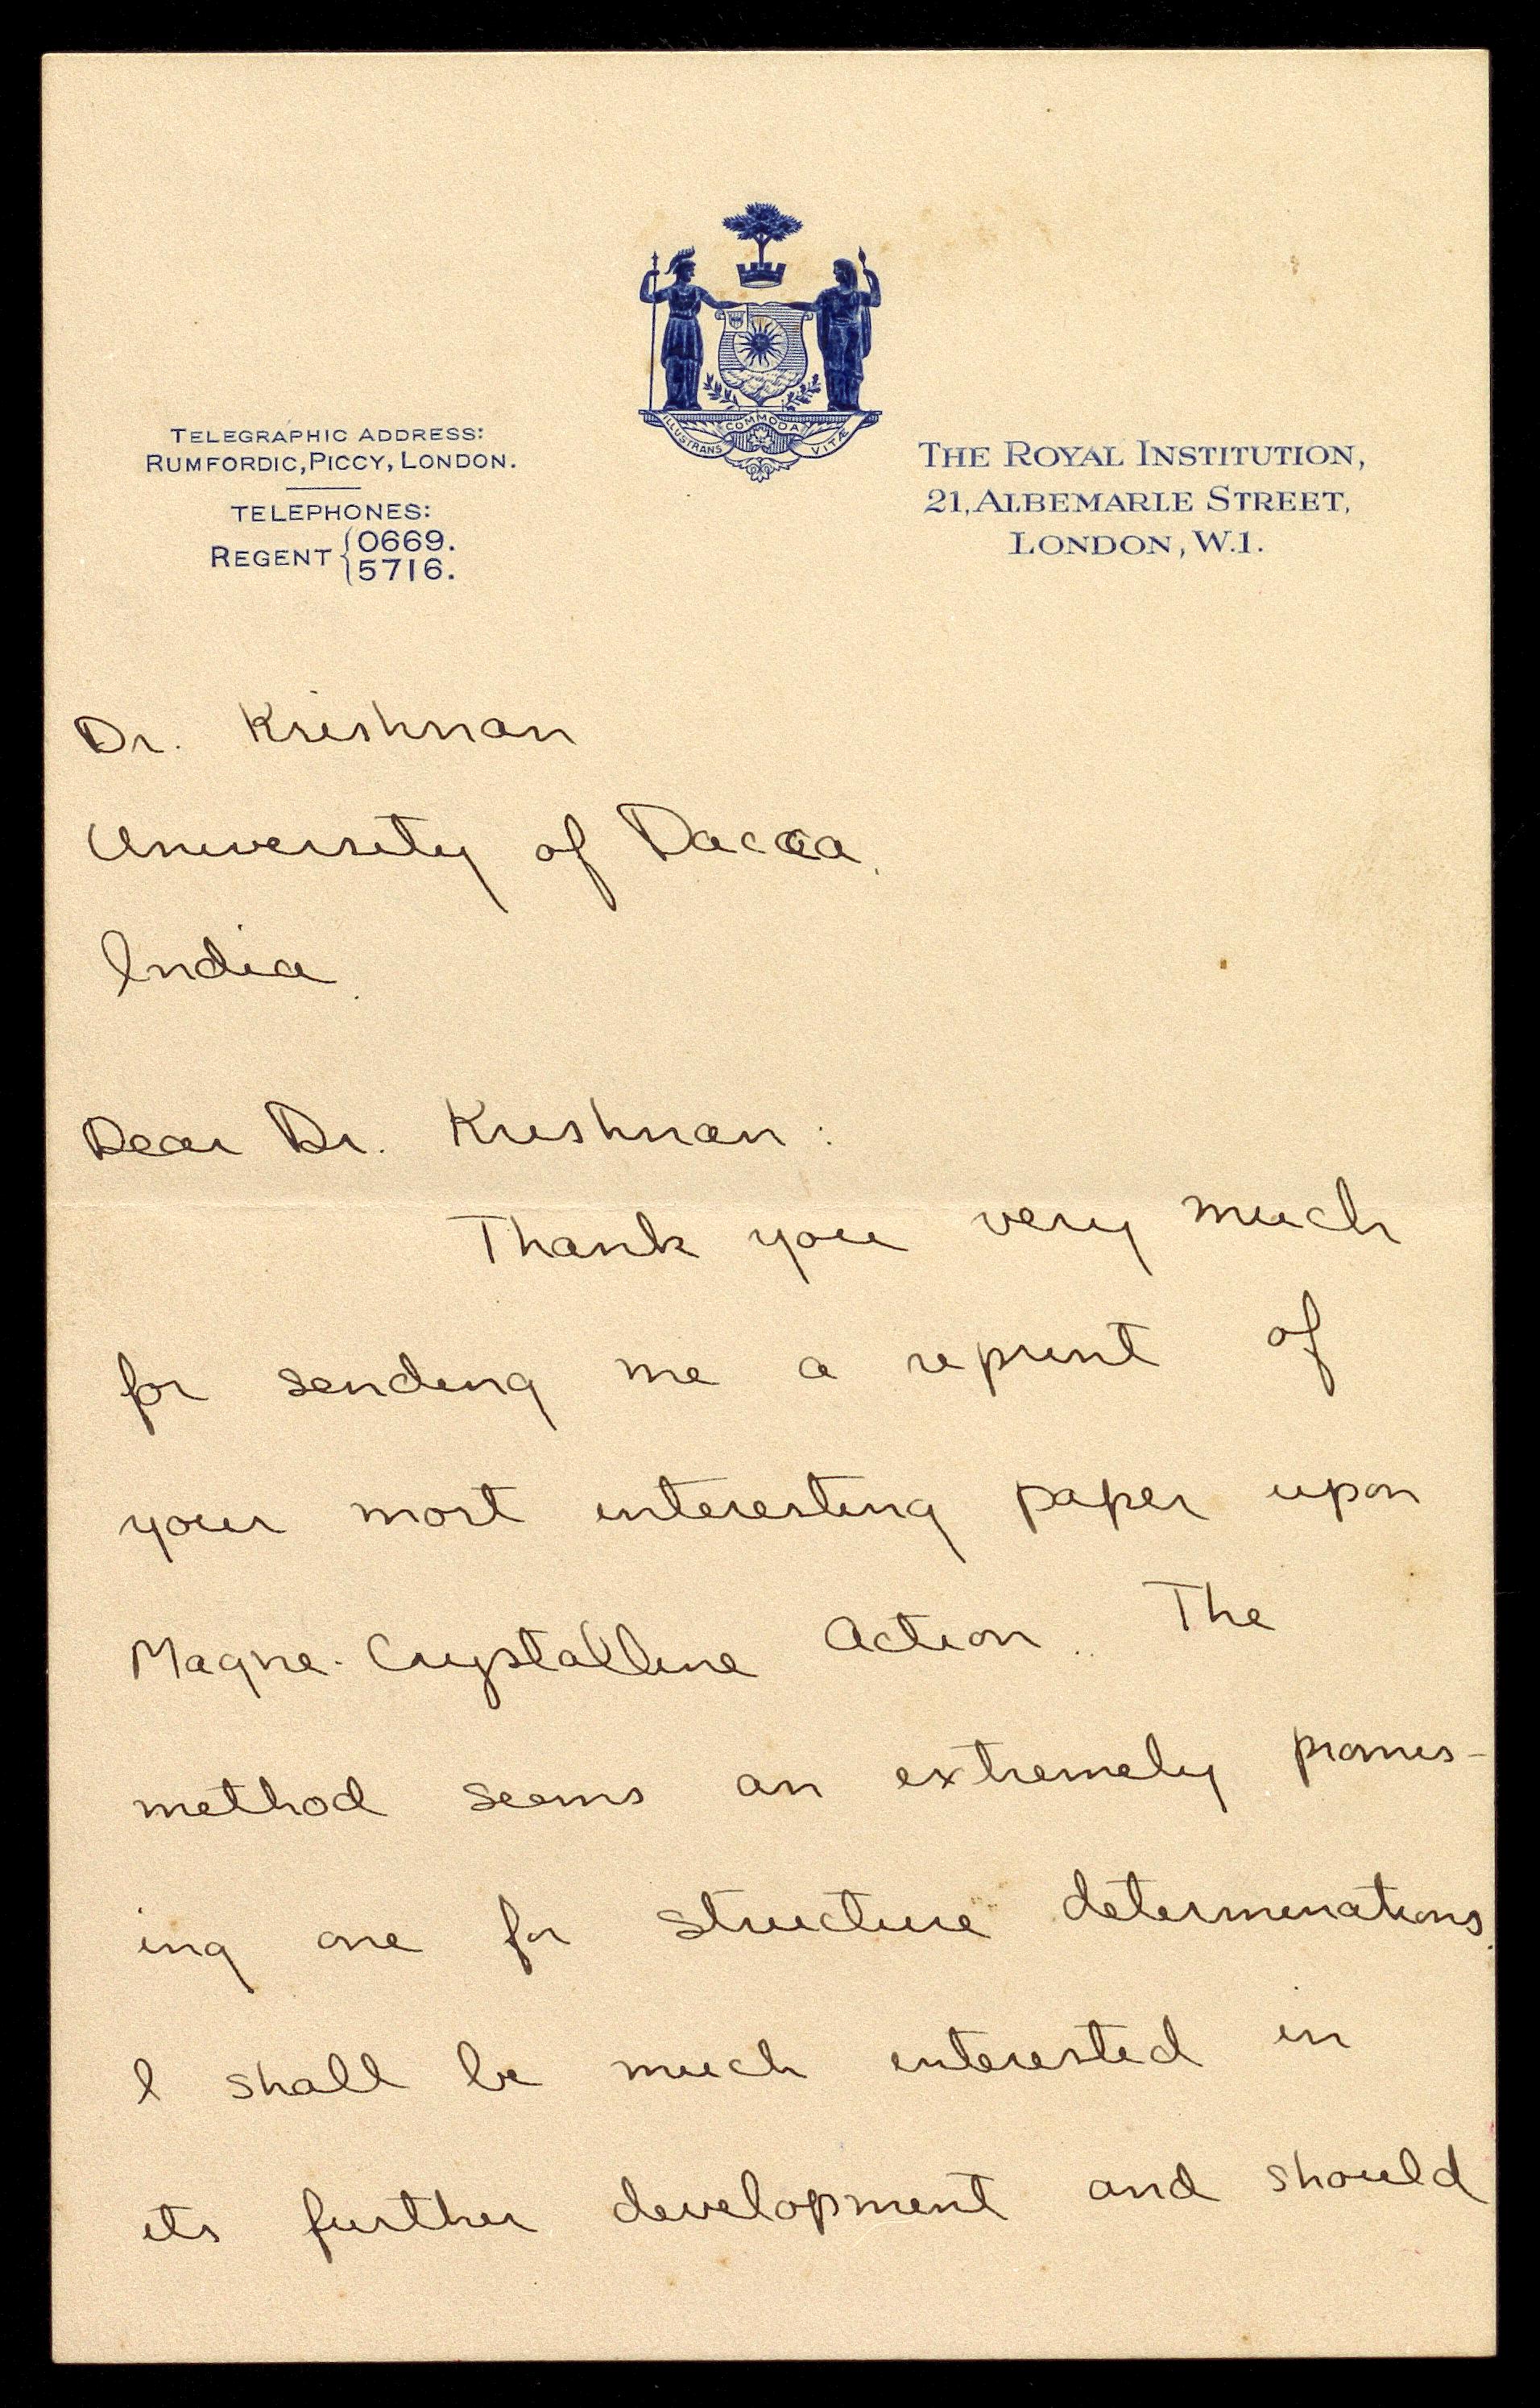 ILLUSTRANS COMMODA VITÆ
TELEGRAPHIC ADDRESS:
RUMFORDIC, PICCY, LONDON.
TELEPHONES:
REGENT { 0669.
5716.
THE ROYAL INSTITUTION,
21, ALBEMARLE STREET,
LONDON, W.1.
Dr. Krishnan
University of Dacca.
India.
Dear Dr. Krishnan:
Thank you very much
for sending me a reprint of
your most interesting paper upon
Magne-Crystalline Action. The
method seems an extremely promis-
ing one for structure determinations.
I shall be much interested in
its further development and should